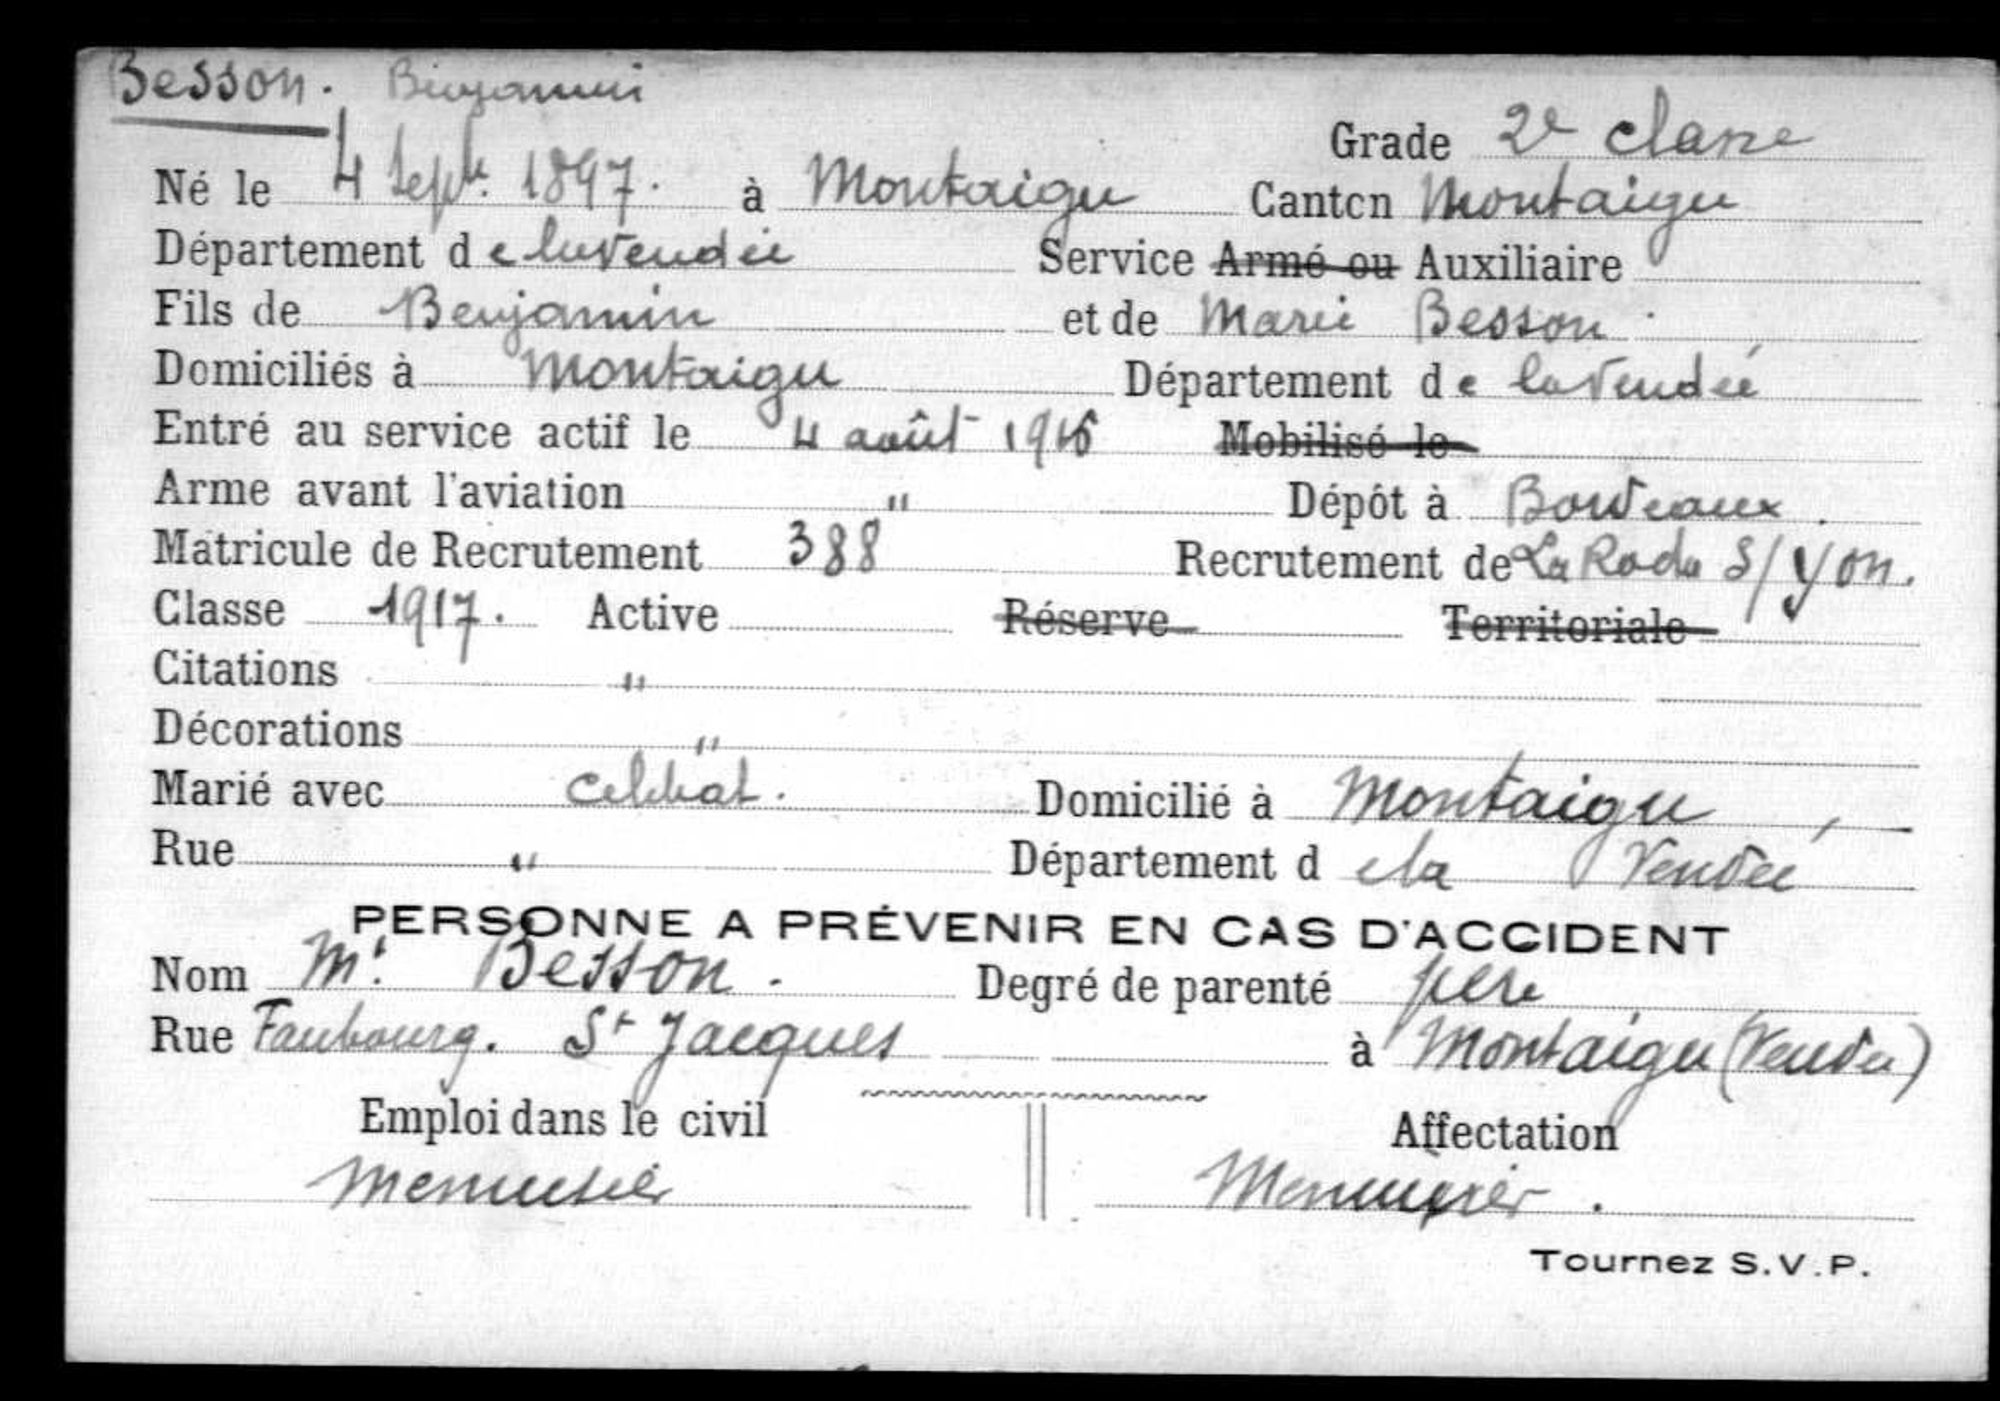 Besson. Benjamin
Grade 2e classe
Né le 4 Septe. 1897. à Montaigu Canton Montaigu
Département de la Vendée Service Armé ou Auxiliaire
Fils de Benjamin et de Marie Besson
Domiciliés à Montaigu Département de la Vendée
Entré au service actif le 4 août 1916 Mobilisé le
Arme avant l'aviation " Dépôt à Bordeaux.
Matricule de Recrutement 388 Recrutement de La Roche S/Yon.
Classe 1917. Active Réserve Territoriale
Citations "
Décorations "
Marié avec Célibat. Domicilié à Montaigu
Rue " Département de la Vendée
PERSONNE A PRÉVENIR EN CAS D'ACCIDENT
Nom Mr. Besson. Degré de parenté père
Rue Faubourg. St Jacques à Montaigu (Vendée)
Emploi dans le civil Affectation
Menuisier Menuisier.
Tournez S.V.P.